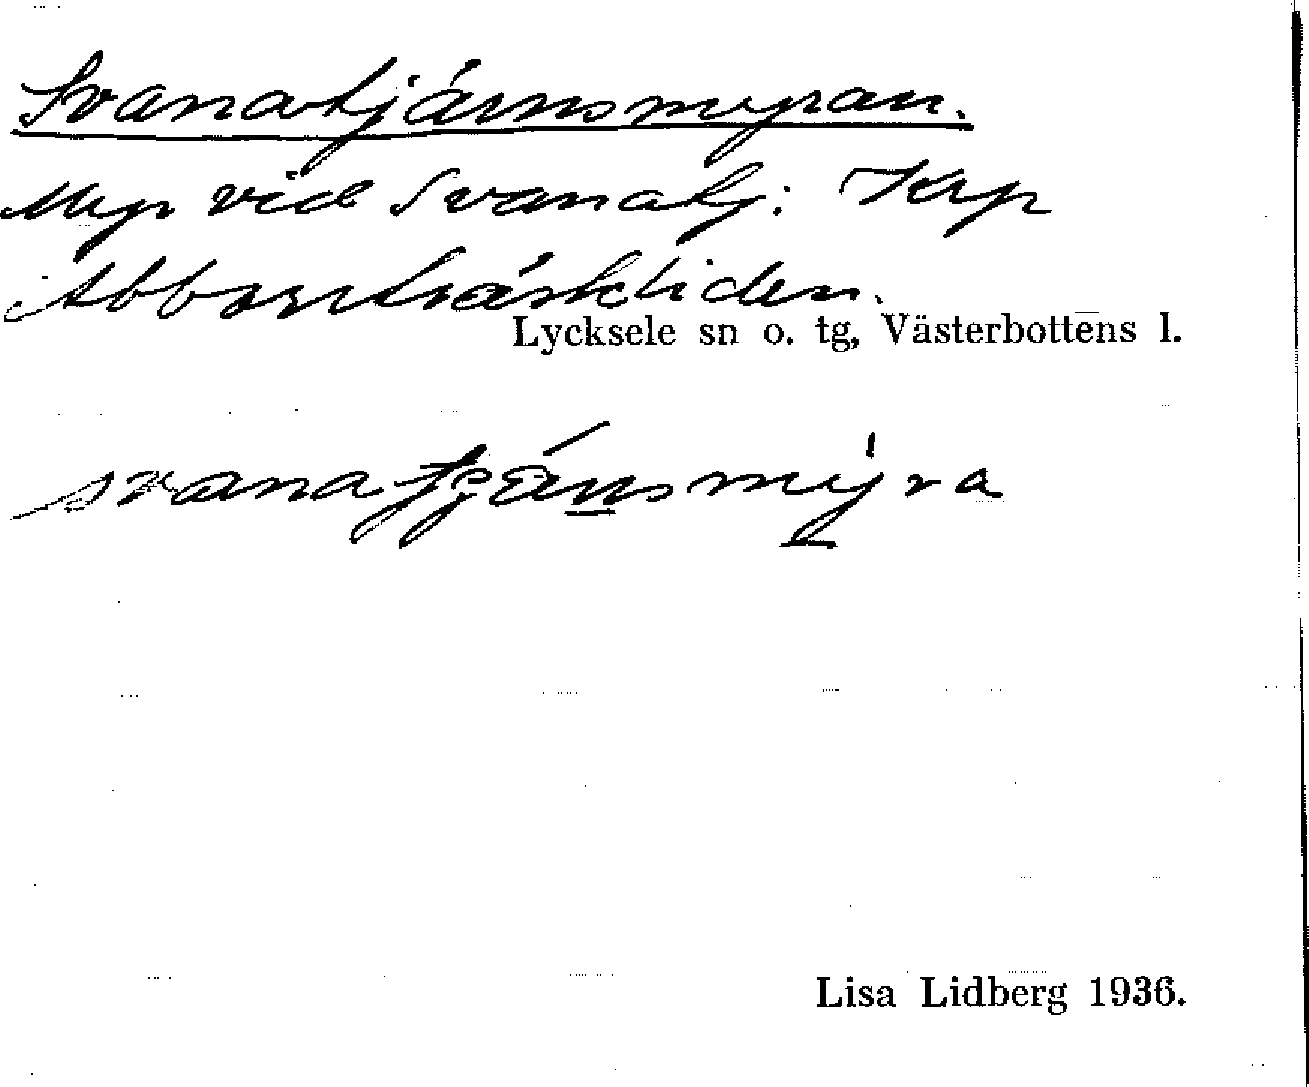 Svanatjärnsmyran.
Myr vid Svanatj. Krp
Abborrträskliden.
Lycksele sn o. tg, Västerbottens l.
svanatjánsmyra
Lisa Lidberg 1936.